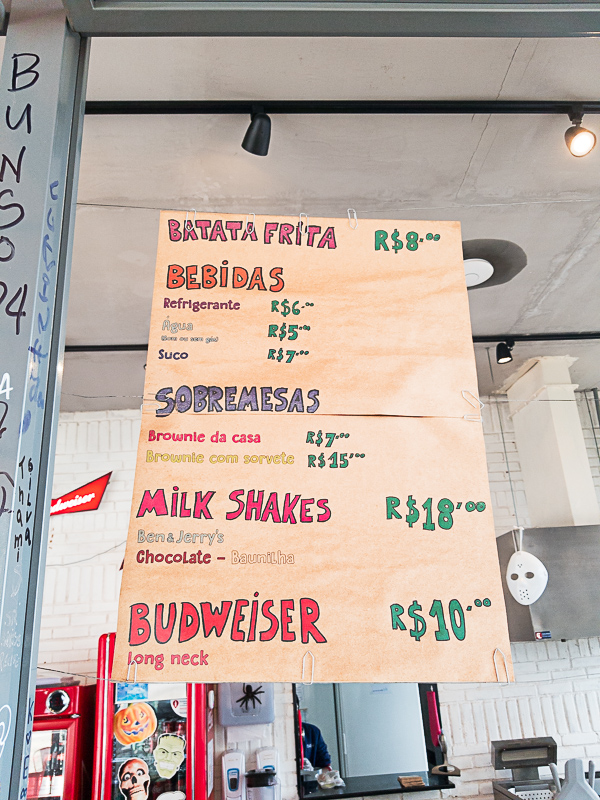 BUNSO
BATATA FRITA R$8,00
BEBIDAS
Refrigerante R$6,00
Água R$5,00
(Com ou sem gás)
Suco R$7,00
SOBREMESAS
Brownie da casa R$7,00
Brownie com sorvete R$15,00
MILK SHAKES R$18,00
Ben & Jerry's
Chocolate - Baunilha
BUDWEISER R$10,00
Long neck
Budweiser
Thami
Silva